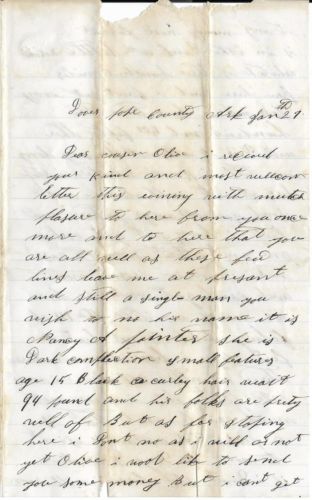 Dover pope County Ark Jan 29th
Dear cousin Olive i received
your kind and most wellcom
letter this evining with mutch
plasure to here from you once
more and to here that you
are all well as these few
lines leave me at present
and still a single man you
wish to no his name it is
Nancy A Jointer she is
Dark complection small features
age 15 Black curley hair wait
94 pound and his folks are prity
well of But as for stoping
here i Dont no as i will or not
yet Olive i woot like to send
you some money But i cant get